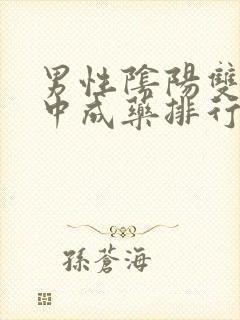 男性陰陽雙
中成藥排行
孫蒼海